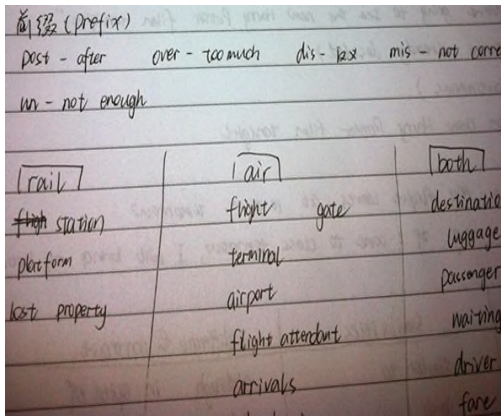 前缀 (prefix)
post - after over - too much dis - mis - not corre
un - not enough
rail air both
station flight gate destinatio
platform terminal luggage
lost property airport passenger
flight attendant waiting
arrivals driver
fare